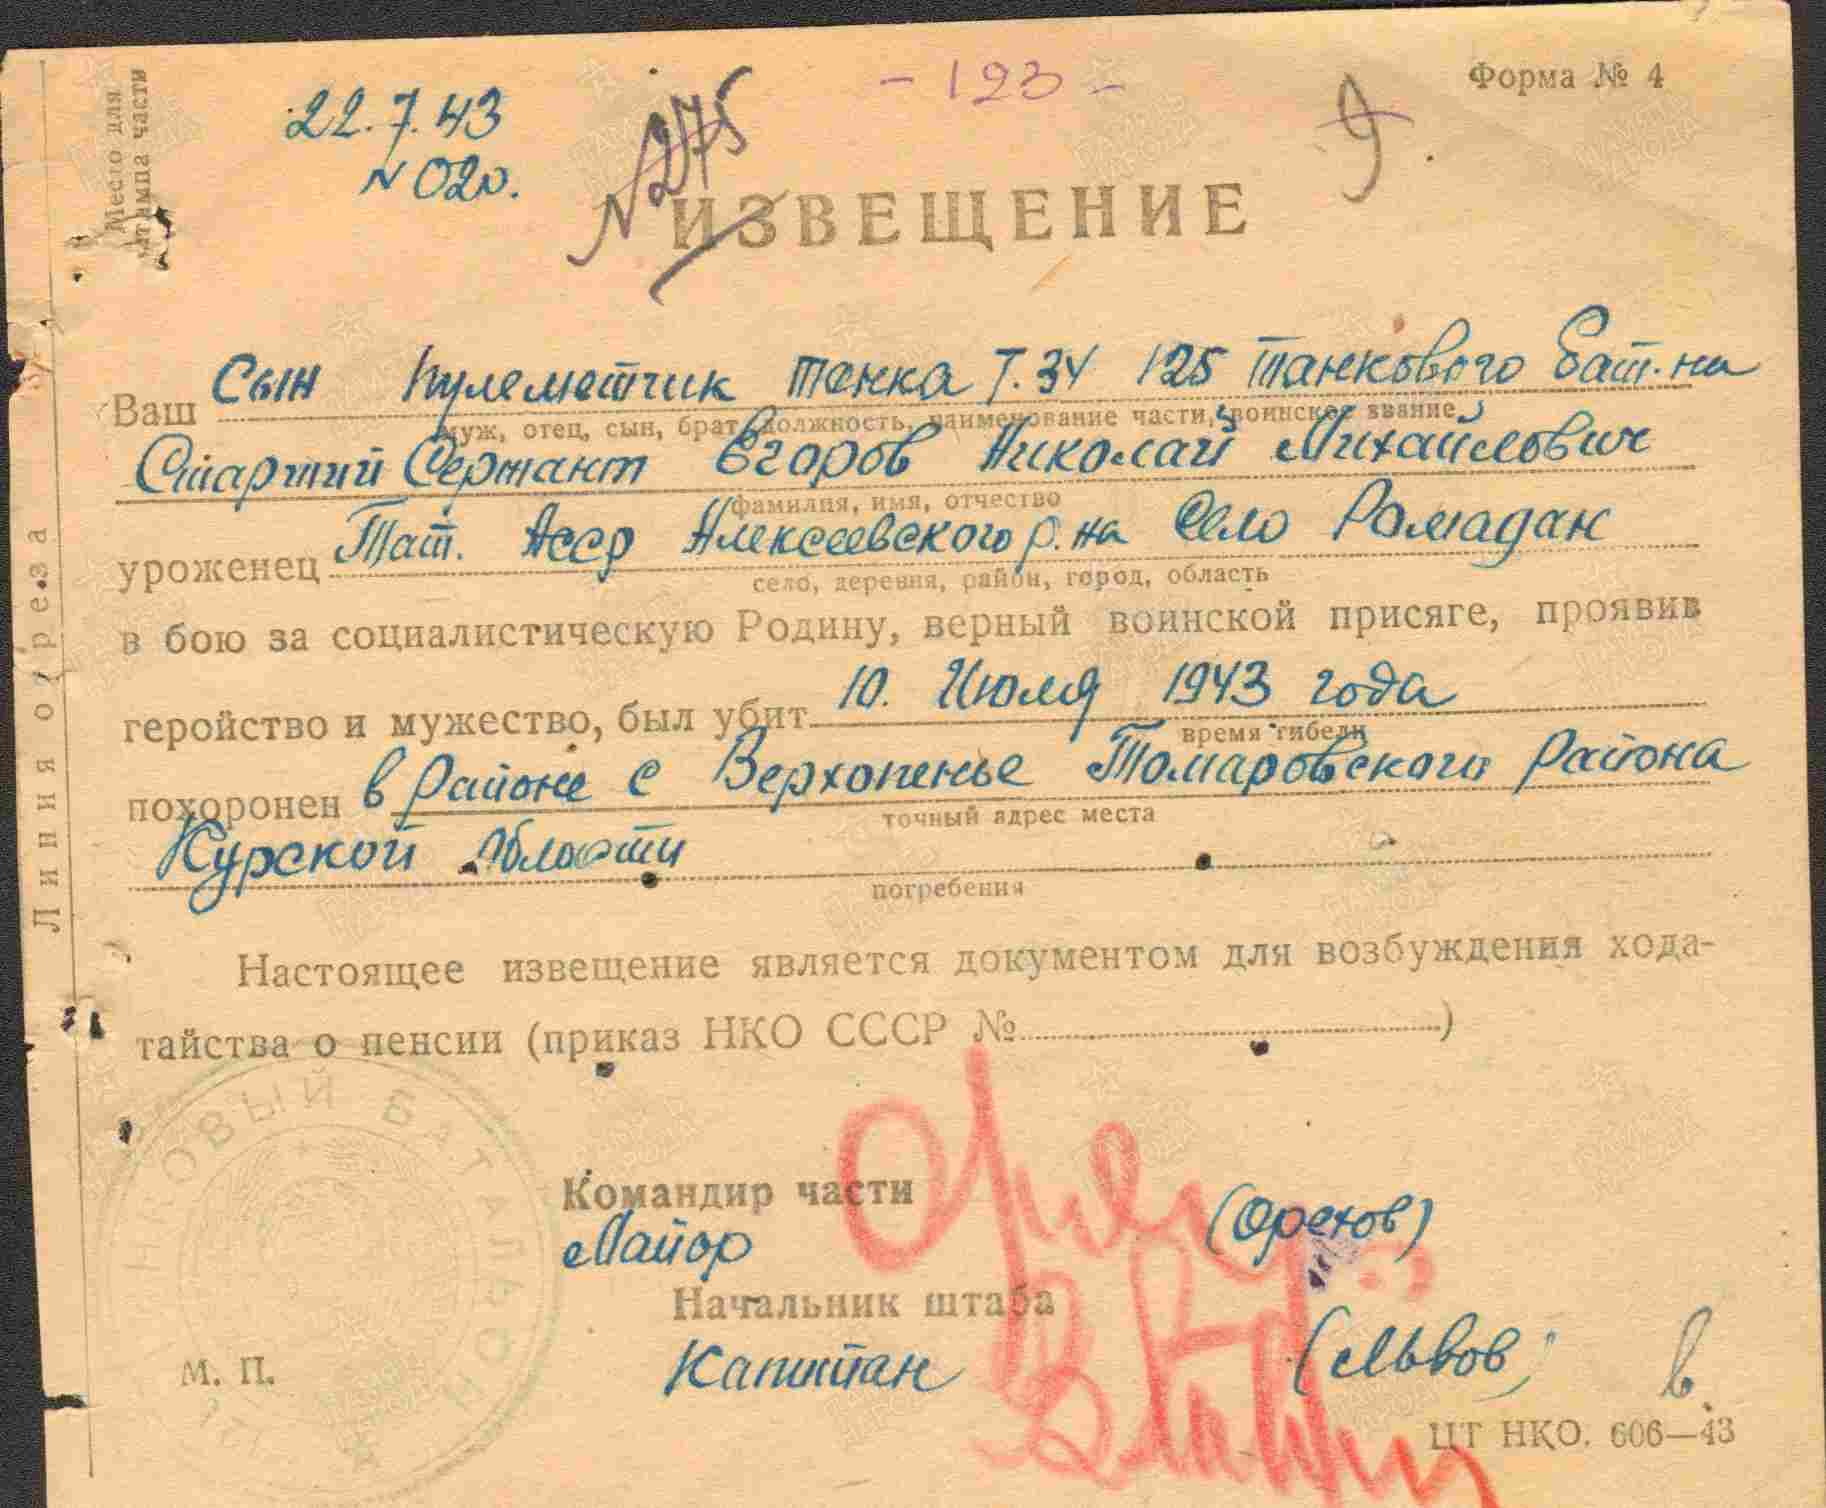 - 123 -
Форма № 4
22.7.43
N 020.
N 275
9.
Место для
штампа части
ИЗВЕЩЕНИЕ
Ваш Сын пулеметчик танка Т.34 125 танкового бат-на
муж, отец, сын, брат, должность, наименование части, воинское звание,
Старший Сержант Егоров Николай Михайлович
фамилия, имя, отчество
уроженец Тат. Асср Алексеевского р-на Село Ромадан
село, деревня, район, город, область
в бою за социалистическую Родину, верный воинской присяге, проявив
геройство и мужество, был убит 10. Июля 1943 года
время гибели
похоронен в районе с Верхопенье Томаровского района
точный адрес места
Курской области
погребения
Настоящее извещение является документом для возбуждения хода-
тайства о пенсии (приказ НКО СССР №)
Командир части
Майор (Орехов)
Начальник штаба
Капитан (Львов)
М. П.
ЦТ НКО. 606—43
Линия отреза
ТАНКОВЫЙ БАТАЛЬОН
ПАМЯТЬ НАРОДА